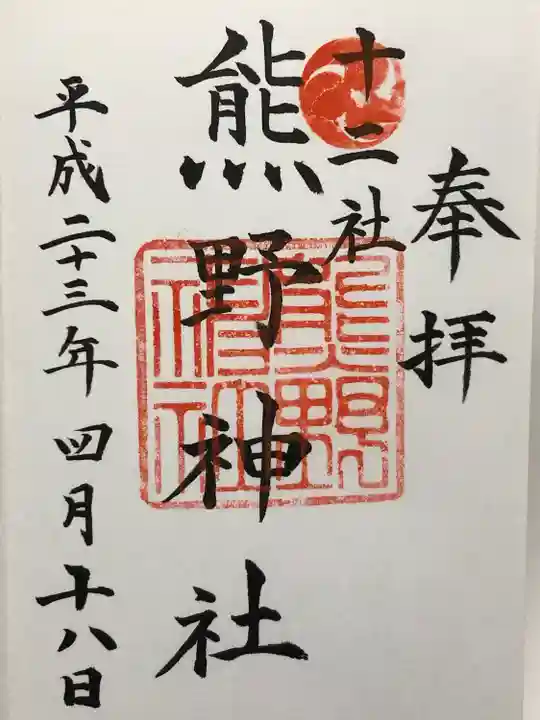 奉拝
十二社
熊野神社
熊野
神社
平成二十三年四月十八日